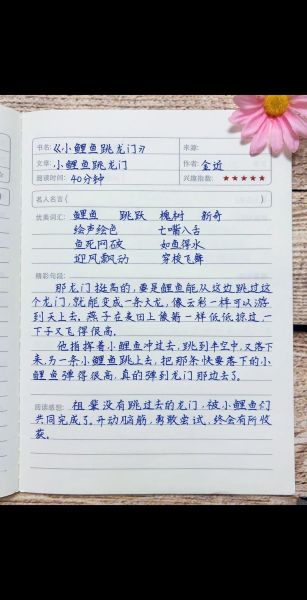 书名:《小鲤鱼跳龙门》 来源:
文章: 小鲤鱼跳龙门 作者: 金近
阅读时间: 40分钟 兴趣指数: ★★★★★
名人名言( )
优美词汇: 鲤鱼 跳跃 槐树 新奇
绘声绘色 七嘴八舌
鱼死网破 如鱼得水
迎风飘动 穿梭飞舞
精彩句段:
那龙门挺高的,要是鲤鱼能从这边跳过这
个龙门,就能变成一条大龙,像云彩一样可以游
到天上去。燕子在麦田上像箭一样低低掠过,一
下子又飞得很高。
他指挥着小鲤鱼冲过去,跳到半空中,又落下
来,另一条小鲤鱼跳上去,把那条快要落下的小
鲤鱼弹得很高,真的弹到龙门那边去了。
阅读感想: 祖辈没有跳过去的龙门,被小鲤鱼们
共同完成了。开动脑筋,勇敢尝试,终会有所收
获。